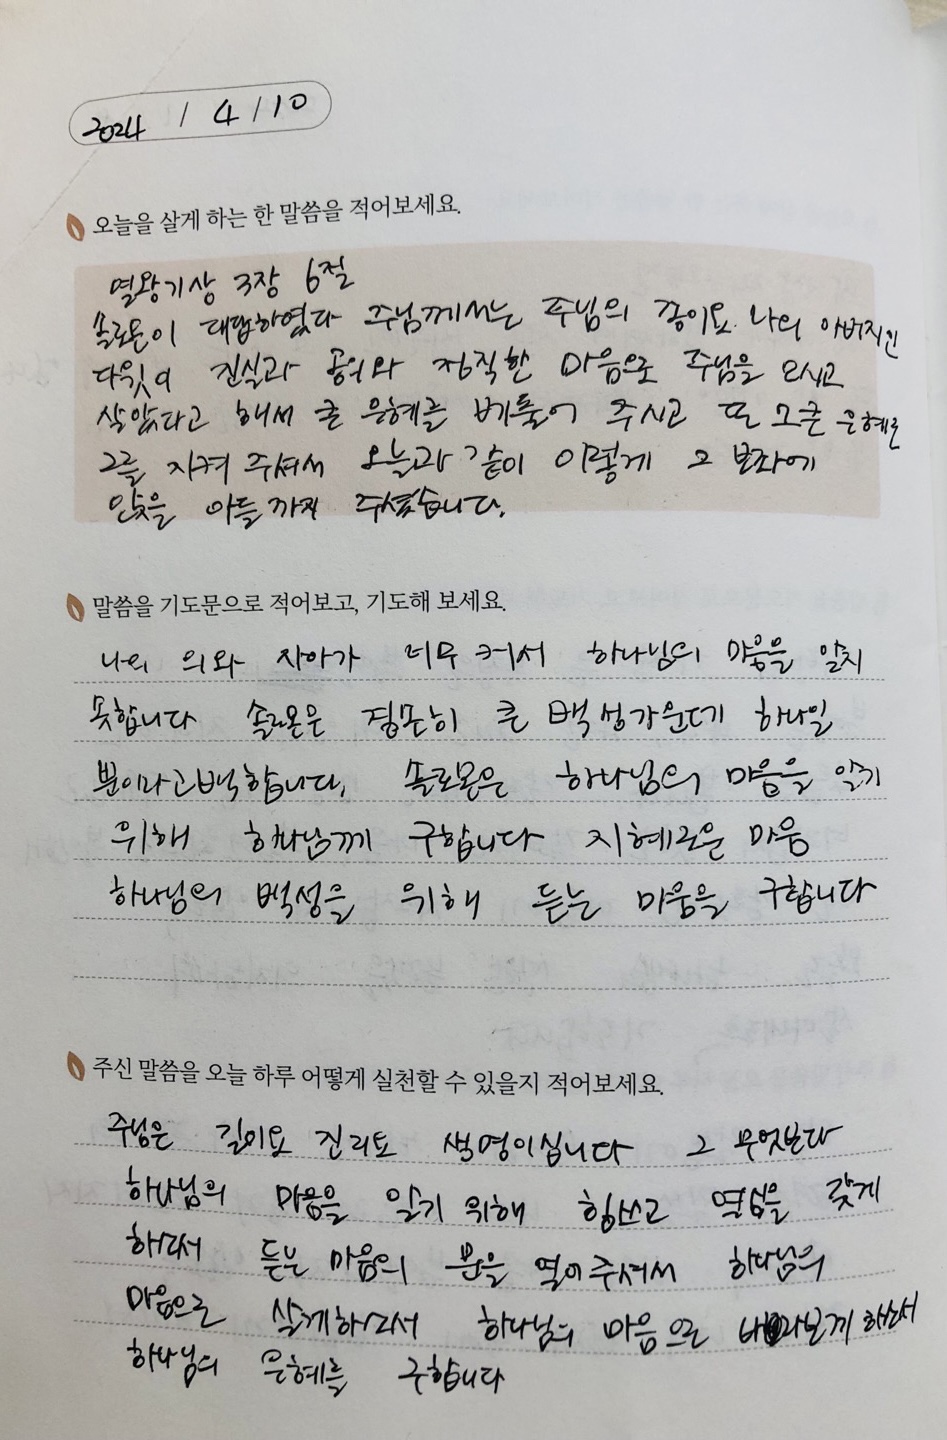 2024 / 4 / 10
오늘을 살게 하는 한 말씀을 적어보세요.
열왕기상 3장 6절
솔로몬이 대답하였다 주님께서는 주님의 종이요 나의 아버지인
다윗이 진실과 공의와 정직한 마음으로 주님을 모시고
살았다고 해서 큰 은혜를 베풀어 주시고 또 그 큰 은혜로
그를 지켜 주셔서 오늘과 같이 이렇게 그 보좌에
앉을 아들까지 주셨습니다.
말씀을 기도문으로 적어보고, 기도해 보세요.
나의 의와 자아가 너무 커서 하나님의 마음을 알지
못합니다 솔로몬은 겸손히 큰 백성가운데 하나일
뿐이라고백합니다. 솔로몬은 하나님의 마음을 알기
위해 하나님께 구합니다 지혜로운 마음
하나님의 백성을 위해 듣는 마음을 구합니다
주신 말씀을 오늘 하루 어떻게 실천할 수 있을지 적어보세요.
주님은 길이요 진리요 생명이십니다 그 무엇보다
하나님의 마음을 알기 위해 힘쓰고 열심을 갖게
하소서 듣는 마음의 문을 열어주셔서 하나님의
마음으로 살게하소서 하나님의 마음으로 바라보게 하소서
하나님의 은혜를 구합니다